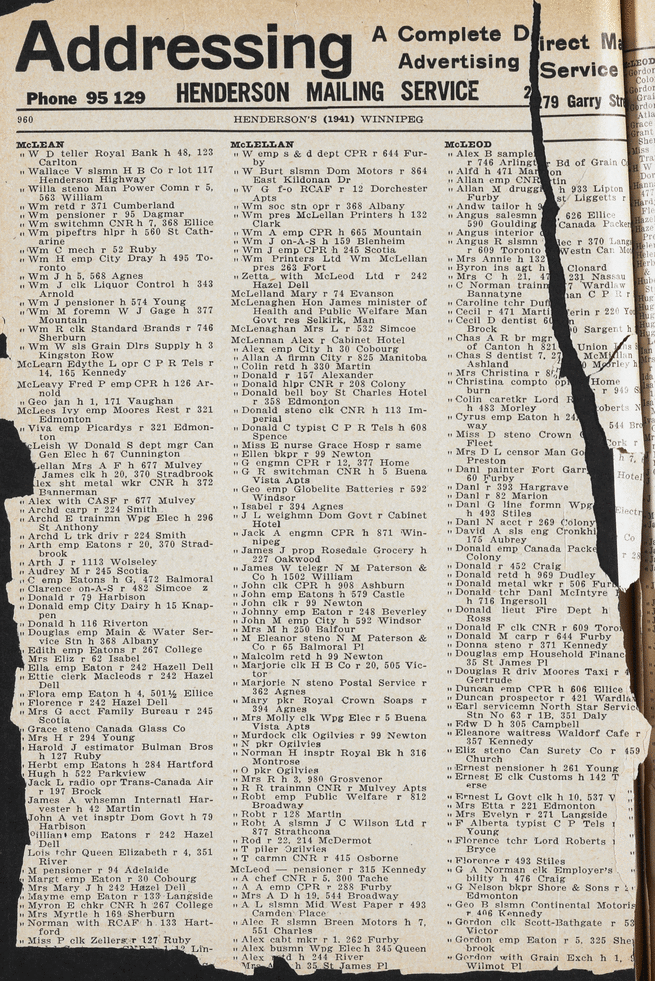 Addressing
A Complete Direct
Advertising Service
Phone 95 129 HENDERSON MAILING SERVICE 279 Garry
960 HENDERSON'S (1941) WINNIPEG
McLEAN
„ W D teller Royal Bank h 48, 123
Carlton
„ Wallace V slsmn H B Co r lot 117
Henderson Highway
„ Willa steno Man Power Comn r 5,
563 William
„ Wm retd r 371 Cumberland
„ Wm pensioner r 95 Dagmar
„ Wm switchmn CNR h 7, 368 Ellice
„ Wm pipefitrs hlpr h 560 St Cath-
arine
„ Wm C mech r 52 Ruby
„ Wm H emp City Dray h 495 To-
ronto
„ Wm J h 5, 568 Agnes
„ Wm J clk Liquor Control h 343
Arnold
„ Wm J pensioner h 574 Young
„ Wm M foremn W J Gage h 377
Mountain
„ Wm R clk Standard Brands r 746
Sherburn
„ Wm W sls Grain Dlrs Supply h 3
Kingston Row
McLearn Edythe L opr C P R Tels r
14, 165 Kennedy
McLeavy Fred P emp CPR h 126 Ar-
nold
„ Geo jan h 1, 171 Vaughan
McLees Ivy emp Moores Rest r 321
Edmonton
„ Viva emp Picardys r 321 Edmon-
ton
cLeish W Donald S dept mgr Can
Gen Elec h 67 Cunnington
Lellan Mrs A F h 677 Mulvey
James clk h 20, 370 Stradbrook
lex sht metal wkr CNR h 372
Bannerman
„ Alex with CASF r 677 Mulvey
„ Archd carp r 224 Smith
„ Archd E trainmn Wpg Elec h 296
St Anthony
„ Archd L trk driv r 224 Smith
rth emp Eatons r 20, 370 Strad-
brook
„ Arth J r 1113 Wolseley
„ Audrey M r 245 Scotia
„ C emp Eatons h G, 472 Balmoral
„ Clarence on-A-S r 482 Simcoe z
„ Donald r 79 Harbison
„ Donald emp City Dairy h 15 Knap-
pen
„ Donald h 116 Riverton
„ Douglas emp Main & Water Ser-
vice Stn h 368 Albany
„ Edith emp Eatons r 267 College
„ Mrs Eliz r 62 Isabel
„ Ella emp Eaton r 242 Hazell Dell
„ Ettie clerk Macleods r 242 Hazel
Dell
„ Flora emp Eaton h 4, 501½ Ellice
„ Florence r 242 Hazel Dell
„ Mrs G acct Family Bureau r 245
Scotia
„ Grace steno Canada Glass Co
„ Mrs H r 294 Young
„ Harold J estimator Bulman Bros
h 127 Ruby
„ Herbt emp Eatons h 284 Hartford
„ Hugh h 522 Parkview
„ Jack L radio opr Trans-Canada Air
r 197 Brock
„ James A whsemn Internatl Har-
vester h 42 Martin
„ John A vet insptr Dom Govt h 79
Harbison
illian emp Eatons r 242 Hazel
Dell
„ Lois tchr Queen Elizabeth r 4, 351
River
„ M pensioner r 94 Adelaide
„ Margt emp Eaton r 30 Cobourg
„ Mrs Mary J h 242 Hazel Dell
„ Mayme emp Eatons r 133 Langside
„ Myron E chkr CNR h 267 College
„ Mrs Myrtle h 169 Sherburn
„ Norman with RCAF h 133 Hart-
ford
„ Miss P clk Zellers r 127 Ruby
McLELLAN
„ W emp s & d dept CPR r 644 Fur-
by
„ W Burt slsmn Dom Motors r 864
East Kildonan Dr
„ W G f-o RCAF r 12 Dorchester
Apts
„ Wm soc stn opr r 368 Albany
„ Wm pres McLellan Printers h 132
Clark
„ Wm A emp CPR h 665 Mountain
„ Wm J on-A-S h 159 Blenheim
„ Wm J emp CPR h 245 Scotia
„ Wm Printers Ltd Wm McLellan
pres 263 Fort
„ Zetta with McLeod Ltd r 242
Hazel Dell
McLelland Mary r 74 Evanson
McLenaghen Hon James minister of
Health and Public Welfare Man
Govt res Selkirk, Man
McLenaghan Mrs L r 532 Simcoe
McLennan Alex r Cabinet Hotel
„ Alex emp City h 30 Cobourg
„ Allan A firmn City r 825 Manitoba
„ Colin retd h 330 Martin
„ Donald r 157 Alexander
„ Donald hlpr CNR r 208 Colony
„ Donald bell boy St Charles Hotel
r 358 Edmonton
„ Donald steno clk CNR h 113 Im-
perial
„ Donald C typist C P R Tels h 608
Spence
„ Miss E nurse Grace Hosp r same
„ Ellen bkpr r 99 Newton
„ G engmn CPR r 12, 377 Home
„ G R switchman CNR h 5 Buena
Vista Apts
„ Geo emp Globelite Batteries r 592
Windsor
„ Isabel r 394 Agnes
„ J L weighmn Dom Govt r Cabinet
Hotel
„ Jack A engmn CPR h 871 Win-
nipeg
„ James J prop Rosedale Grocery h
227 Oakwood
„ James W telegr N M Paterson &
Co h 1502 William
„ John clk CPR h 908 Ashburn
„ John emp Eatons h 579 Castle
„ John clk r 99 Newton
„ Johnny emp Eaton r 248 Beverley
„ John M emp City h 592 Windsor
„ Mrs M h 250 Balfour
„ M Eleanor steno N M Paterson &
Co r 65 Balmoral Pl
„ Malcolm retd h 99 Newton
„ Marjorie clk H B Co r 20, 505 Vic-
tor
„ Marjorie N steno Postal Service r
362 Agnes
„ Mary pkr Royal Crown Soaps r
394 Agnes
„ Mrs Molly clk Wpg Elec r 5 Buena
Vista Apts
„ Murdock clk Ogilvies r 99 Newton
„ N pkr Ogilvies
„ Norman H insptr Royal Bk h 316
Montrose
„ O pkr Ogilvies
„ Mrs R h 3, 980 Grosvenor
„ R R trainmn CNR r Mulvey Apts
„ Robt emp Public Welfare r 812
Broadway
„ Robt r 128 Martin
„ Robt A slsmn J C Wilson Ltd r
877 Strathcona
„ Rod r 22, 214 McDermot
„ T piler Ogilvies
„ T carmn CNR r 415 Osborne
McLeod — pensioner r 315 Kennedy
„ A chef CNR r 5, 300 Tache
„ A A emp CPR r 288 Furby
„ Mrs A D h 19, 544 Broadway
„ A L slsmn Mid West Paper r 493
Camden Place
„ Alec R slsmn Breen Motors h 7,
551 Charles
„ Alex cabt mkr r 1, 262 Furby
„ Alex busmn Wpg Elec h 345 Queen
„ Alex td h 244 River
„ Mrs A h 35 St James Pl
McLEOD
„ Alex B sampler
r 746 Arling Bd of Grain
„ Alfd h 471 Man
„ Allan emp CNR
„ Allan M druggi h 933 Lipton
Furby st Liggetts r
„ Andw tailor h 9
„ Angus salesmn 626 Ellice
590 Goulding Canada Packer
„ Angus interior
„ Angus R slsmn lec r 370 Lang
r 609 Toronto Westn Can Mo
„ Mrs Annie h 132
„ Byron ins agt h Clonard
„ Mrs C h 21, 47 231 Nassau
„ C Norman trainm 7 Wardlaw
Bannatyne an C P R
„ Caroline tchr Duf
„ Cecil r 471 Marti erin r 220
„ Cecil D dentist 60
Brock 0 Sargent h
„ Chas A R br mgr
of Canton h 821 Union
„ Chas S dentist 7, 27 McM
Ashland Morley h
„ Mrs Christina r 8
„ Christina compto Home
burn r 949
„ Colin caretkr Lord R
h 483 Morley oberts
„ Cyrus emp Eaty h 24
way 544
„ Miss D steno Crown
Fleet
„ Mrs D L censor Man Go
Preston
„ Danl painter Fort Garr
60 Furby
„ Danl r 393 Hargrave
„ Danl r 82 Marion
„ Danl G line formn Wpg
h 493 Stiles
„ Danl N acct r 269 Colony
„ David A sls eng Cronkhi
175 Aubrey
„ Donald emp Canada Packe
Colony
„ Donald r 452 Craig
„ Donald retd h 969 Dudley
„ Donald metal wkr r 506 Furb
„ Donald tchr Danl McIntyre
h 716 Ingersoll
„ Donald lieut Fire Dept h
Ross
„ Donald F clk CNR r 609 Toron
„ Donald M carp r 644 Furby
„ Donna steno r 371 Kennedy
„ Douglas emp Household Financ
35 St James Pl
„ Douglas R driv Moores Taxi r 4
Gertrude
„ Duncan emp CPR h 606 Ellice
„ Duncan prospector r 421 Wardla
„ Earl servicemn North Star Servic
Stn No 63 r 1B, 351 Daly
„ Edw D h 305 Campbell
„ Eleanore waitress Waldorf Cafe r
357 Kennedy
„ Eliz steno Can Surety Co r 459
Church
„ Ernest pensioner h 261 Young
„ Ernest E clk Customs h 142 T
erse
„ Ernest L Govt clk h 10, 537 V
„ Mrs Etta r 221 Edmonton
„ Mrs Evelyn r 271 Langside
„ F Alberta typist C P Tels
Young
„ Florence tchr Lord Roberts
Bryce
„ Florence r 493 Stiles
„ G A Norman clk Employer's
bility h 476 Craig
„ G Nelson bkpr Shore & Sons r
Edmonton
„ Geo B slsmn Continental Motoris
r 406 Kennedy
„ Gordon clk Scott-Bathgate r 53
Victor
„ Gordon emp Eaton r 5, 325 She
brook
„ Gordon with Grain Exch h 1,
Wilmot Pl